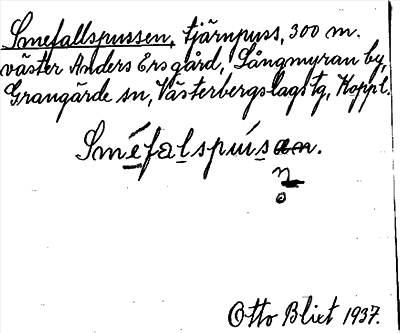 Smefallspussen, tjärnpuss, 300 m.
väster Anders Ersgård, Långmyran by,
Grangärde sn, Västerbergslags tg, Koppl.
Sméfalspúısan.
n
o
Otto Blixt 1937.